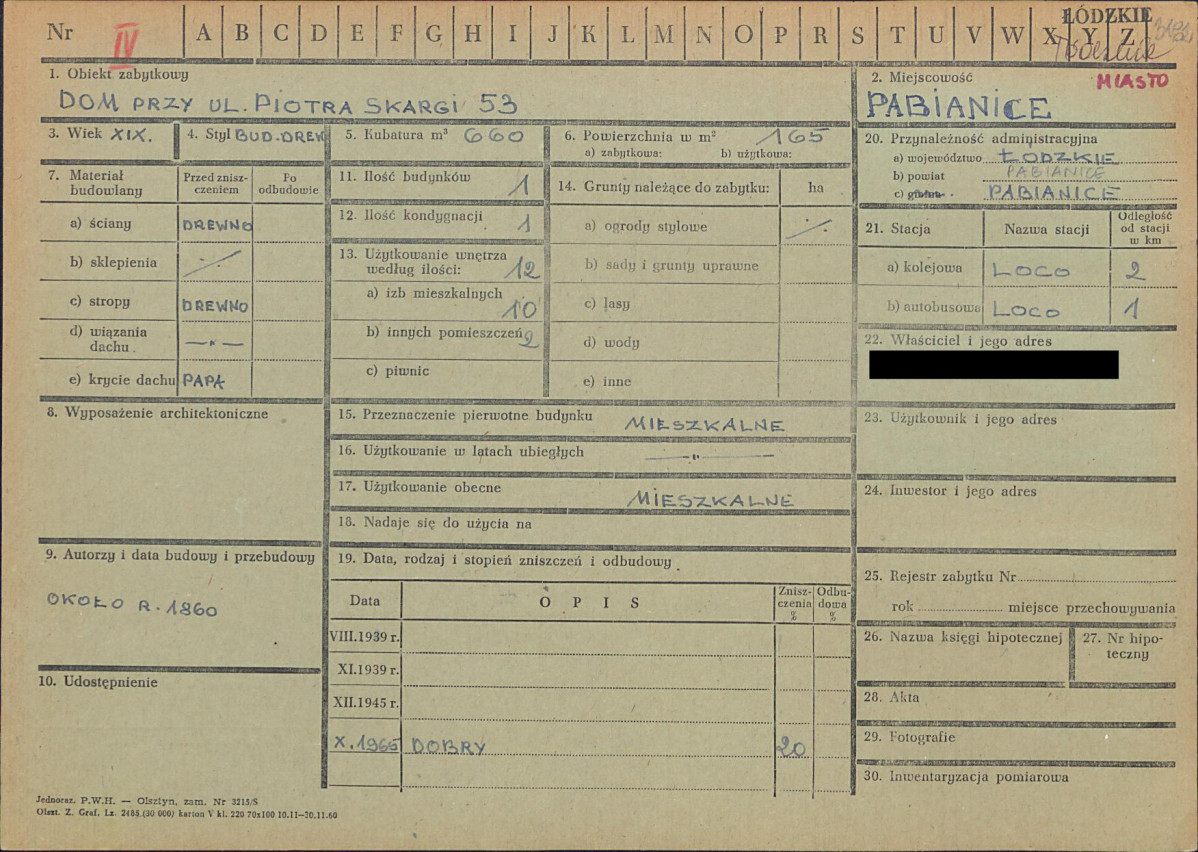 Nr IV A B C D E F G H I J K L M N O P R S T U V W X Y Z
ŁÓDZKIE
1. Obiekt zabytkowy
DOM PRZY UL. PIOTRA SKARGI 53
2. Miejscowość
MIASTO
PABIANICE
3. Wiek XIX.
4. Styl BUD. DREW
5. Kubatura m³ 660
6. Powierzchnia w m² 165
a) zabytkowa: b) użytkowa:
7. Materiał budowlany
Przed znisz-
czeniem
Po
odbudowie
a) ściany DREWNO
b) sklepienia ·/·
c) stropy DREWNO
d) wiązania
dachu — „ —
e) krycie dachu PAPA
8. Wyposażenie architektoniczne
9. Autorzy i data budowy i przebudowy
OKOŁO R. 1860
10. Udostępnienie
11. Ilość budynków 1
12. Ilość kondygnacji 1
13. Użytkowanie wnętrza
według ilości: 12
a) izb mieszkalnych 10
b) innych pomieszczeń 2
c) piwnic
14. Grunty należące do zabytku: ha
a) ogrody stylowe ·/·
b) sady i grunty uprawne
c) lasy
d) wody
e) inne
15. Przeznaczenie pierwotne budynku MIESZKALNE
16. Użytkowanie w latach ubiegłych — „ —
17. Użytkowanie obecne MIESZKALNE
18. Nadaje się do użycia na
19. Data, rodzaj i stopień zniszczeń i odbudowy
Data OPIS
Znisz-
czenia
%
Odbu-
dowa
%
VIII.1939 r.
XI.1939 r.
XII.1945 r.
X. 1966 DOBRY 20
20. Przynależność administracyjna
a) województwo ŁODZKIE
b) powiat PABIANICE
c) gmina PABIANICE
21. Stacja Nazwa stacji
Odległość
od stacji
w km
a) kolejowa LOCO 2
b) autobusowa LOCO 1
22. Właściciel i jego adres
23. Użytkownik i jego adres
24. Inwestor i jego adres
25. Rejestr zabytku Nr
rok miejsce przechowywania
26. Nazwa księgi hipotecznej
27. Nr hipo-
teczny
28. Akta
29. Fotografie
30. Inwentaryzacja pomiarowa
Jednoraz. P.W.H. — Olsztyn, zam. Nr 3215/S
Olszt. Z. Graf. Lz. 2485 (30 000) karton V kl. 220 70x100 10.11—30.11.60